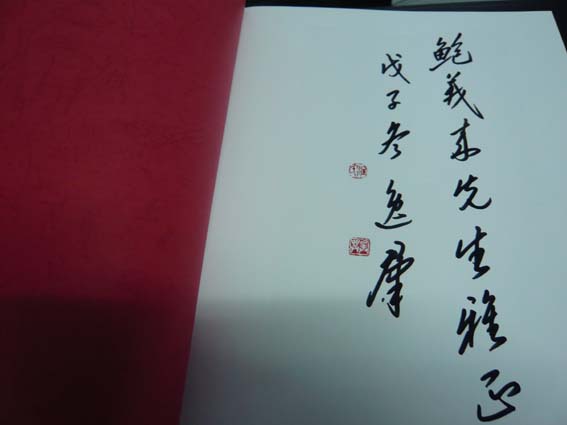 鲍義来先生雅正
戊子冬逸群